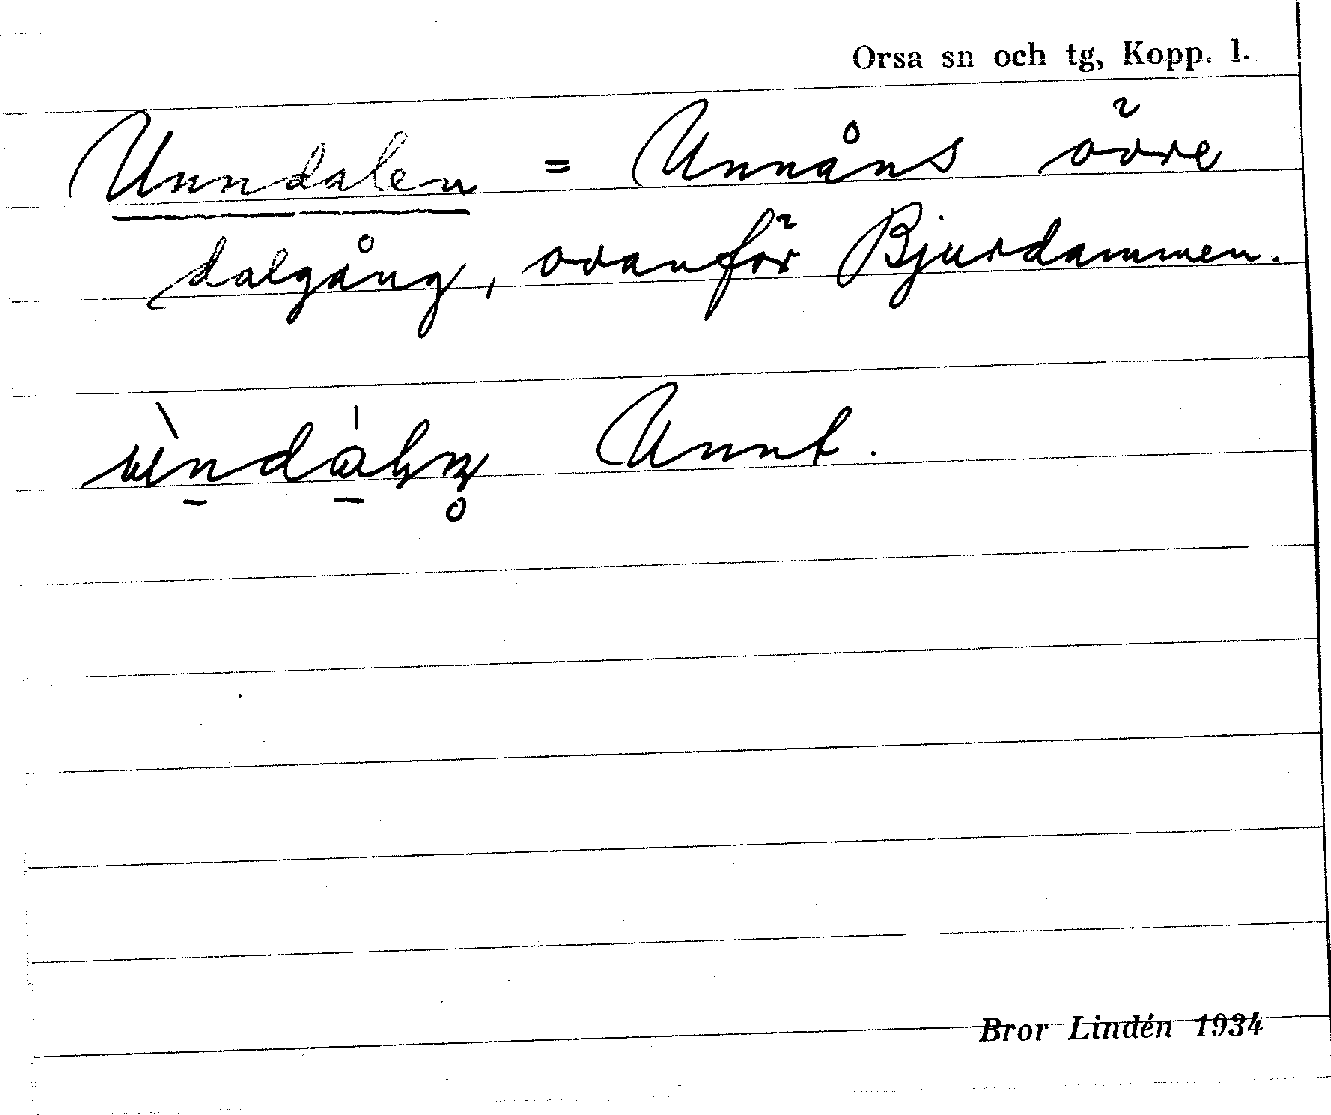 Orsa sn och tg, Kopp. l.
Unndalen = Unnåns övre
dalgång, ovanför Bjurdammen.
Bror Lindén 1934